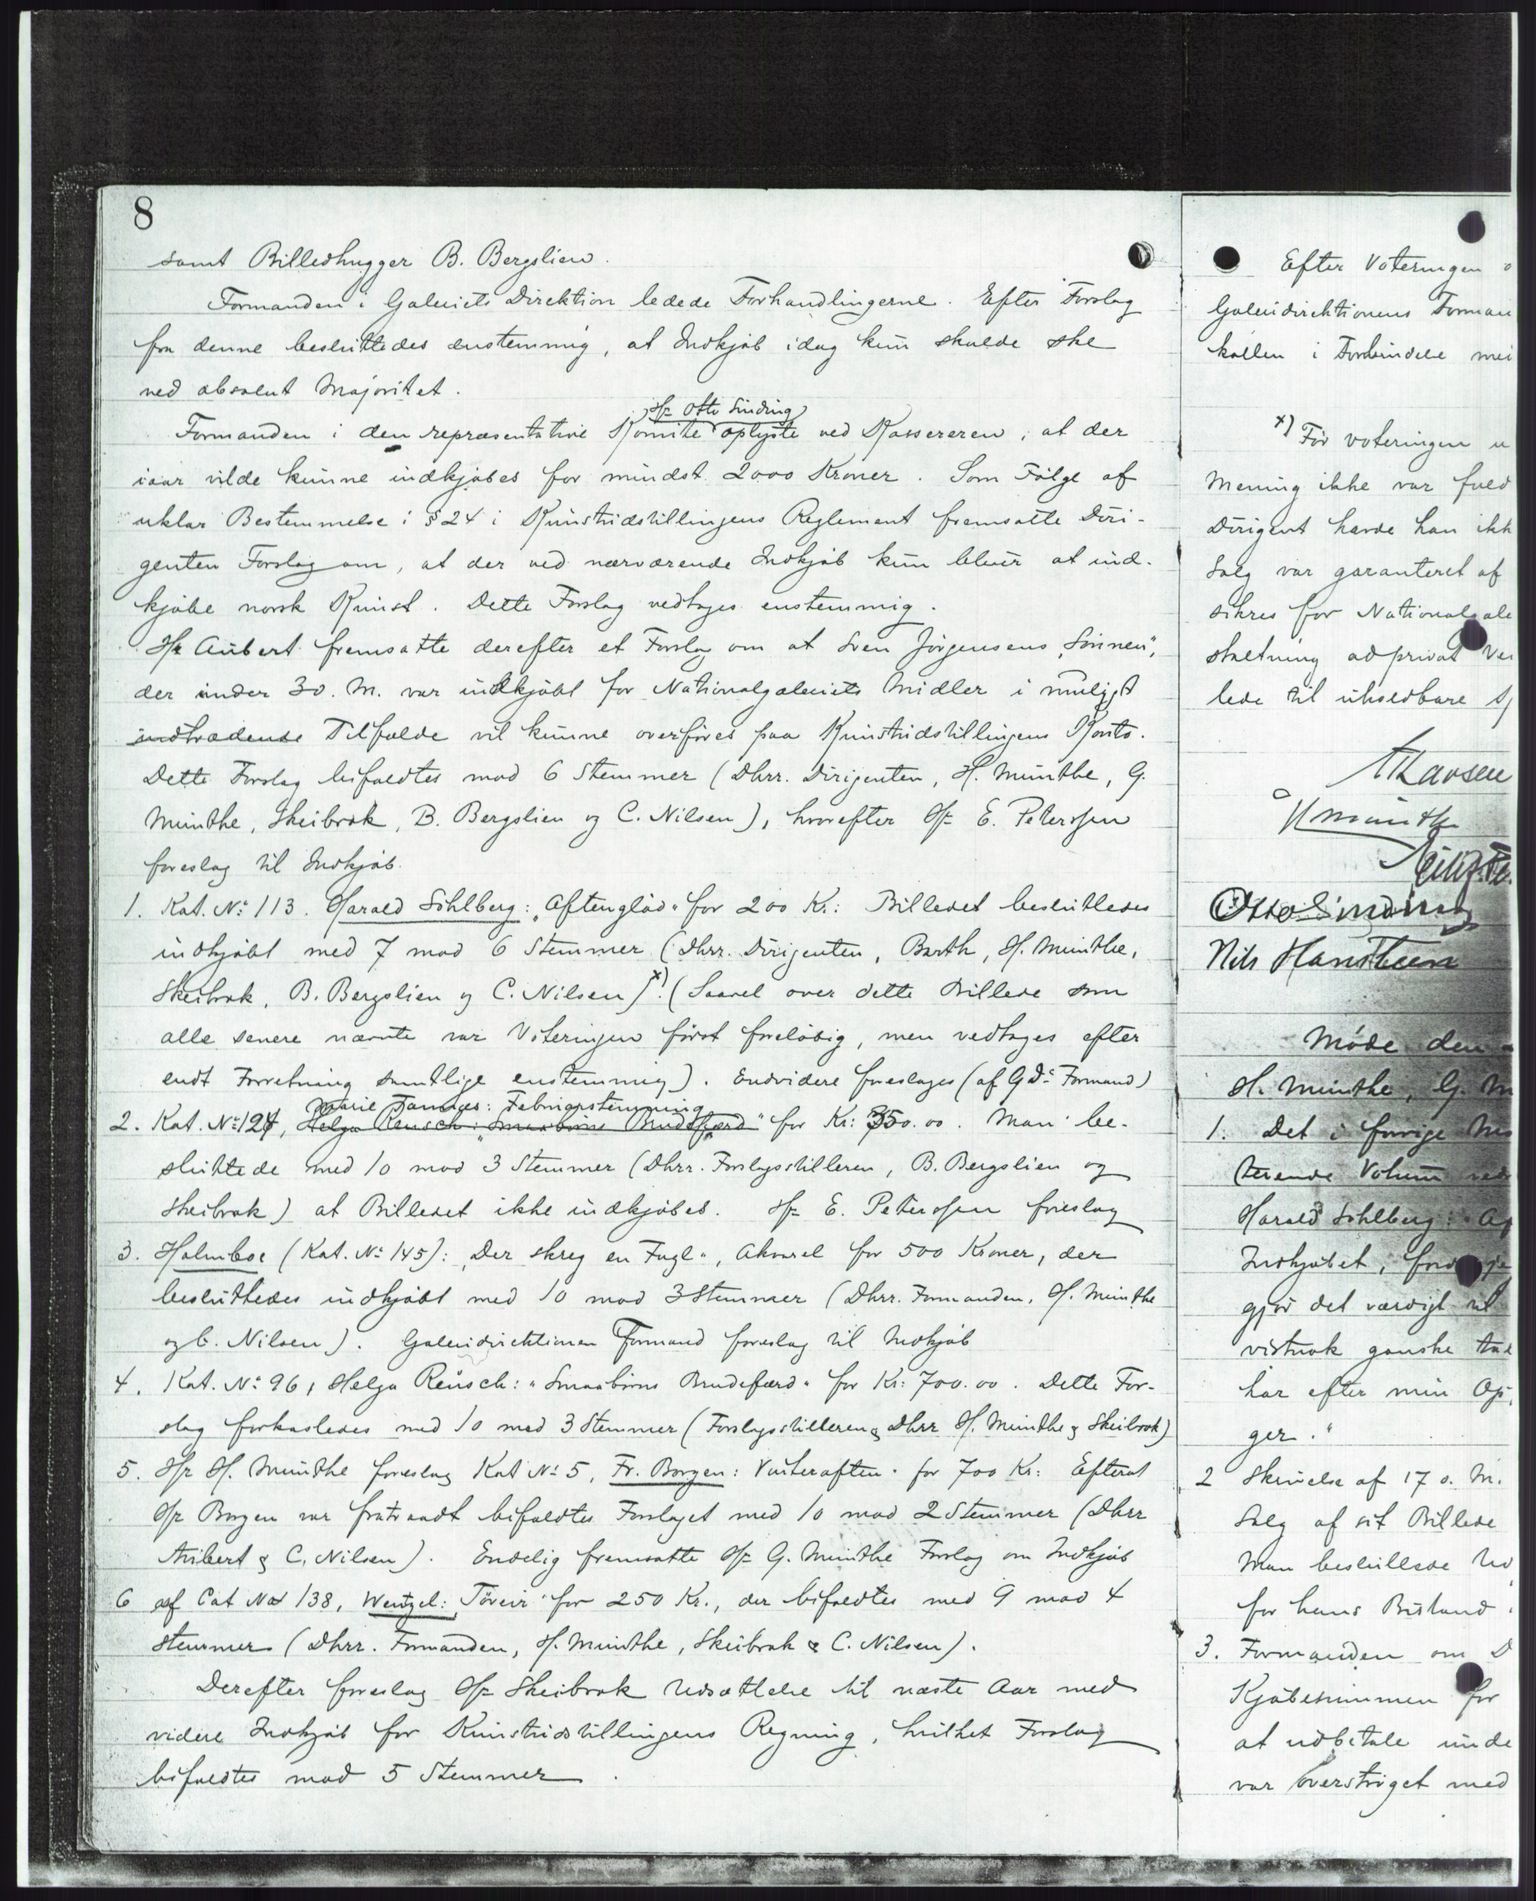 8
samt Billedhugger B. Bergslien.
Formanden i Galeriets Direktion ledede Forhandlingerne. Efter Forslag
fra denne besluttedes enstemmig, at Indkjøb idag kun skulde ske
ved absolut Majoritet.
Formanden i den repræsentative Komite Hr Otto Sinding oplyste ved Kassereren, at der
iaar vilde kunne indkjøbes for mindst 2000 Kroner. Som Følge af
uklar Bestemmelse i § 24 i Kunstudstillingens Reglement fremsatte Diri-
genten Forslag om, at der ved nærværende Indkjøb kun blev at ind-
kjøbe norsk Kunst. Dette Forslag vedtoges enstemmig.
Hr Aubert fremsatte derefter et Forslag om at Sven Jørgensens "Sønnen",
der under 30. M. var indkjøbt for Nationalgaleriets Midler i muligt
indtrædende Tilfælde vil kunne overføres paa Kunstudstillingens Konto.
Dette Forslag bifaldtes mod 6 Stemmer (Dhrr. Dirigenten, H. Munthe, G.
Munthe, Skeibrok, B. Bergslien og C. Nilsen), hvorefter Hr E. Peterssen
foreslog til Indkjøb.
1. Kat. No 113. Harald Sohlberg: "Aftenglød" for 200 Kr: Billedet besluttedes
indkjøbt med 7 mod 6 Stemmer (Dhrr. Dirigenten, Barth, H. Munthe,
Skeibrok, B. Bergslien og C. Nilsen) x). (Saavel over dette Billede som
alle senere nævnte var Voteringen først foreløbig, men vedtoges efter
endt Forretning samtlige enstemmig). Endvidere foresloges (af G.D: Formand)
Marie Tannæs: Februarstemning
2. Kat. No 124, Helga Reusch: "Smaabørns Brudefærd" for Kr: 350.00. Man be-
sluttede med 10 mod 3 Stemmer (Dhrr. Forslagsstilleren, B. Bergslien og
Skeibrok) at Billedet ikke indkjøbes. Hr E. Peterssen foreslog
3. Holmboe (Kat. No 145): "Der skreg en Fugl", Akvarel for 500 Kroner, der
besluttedes indkjøbt med 10 mod 3 Stemmer (Dhrr. Formanden, H. Munthe
og C. Nilsen). Galeridirektionen Formand foreslog til Indkjøb
4. Kat. No 96, Helga Reusch: "Smaabørns Brudefærd" for Kr: 700.00. Dette For-
slag forkastedes med 10 mod 3 Stemmer (Forslagsstilleren & Dhrr H. Munthe & Skeibrok)
5. Hr H. Munthe foreslog Kat No 5, Fr. Borgen: Vinteraften for 700 Kr: Efterat
Hr Borgen var fratraadt bifaldtes Forslaget med 10 mod 2 Stemmer (Dhrr
Aubert & C. Nilsen). Endelig fremsatte Hr G. Munthe Forslag om Indkjøb
6 af Cat No 138, Wentzel: "Tøveir" for 250 Kr., der bifaldtes med 9 mod 4
Stemmer (Dhrr. Formanden, H. Munthe, Skeibrok & C. Nilsen).
Derefter foreslog Hr Skeibrok Udsættelse til næste Aar med
videre Indkjøb for Kunstudstillingens Regning, hvilket Forslag
bifaldtes mod 5 Stemmer.
Efter Voteringen
Galeridirektionens Forman
kollen i Forbindelse
x) Før voteringen
Mening ikke var
Dirigent havde han ikk
Salg var garanteret af
sikres for Nationalgale
staltning ad privat
lede til uhredbare
Otto Sinding
Nils Hansteen
Møde den
H. Munthe, G. M
1. Det i forrige
Harald Sohlberg: "A
Indkjøbet,
gjør det værdigt til
vistnok ganske
har efter min Op
ger."
2 Skrivelse af 17 d. M.
Salg af sit Billede
Man besluttede
for hans Bistand
3. Formanden om D
Kjøbesummen for
at udbetale unde
var overstrøget med